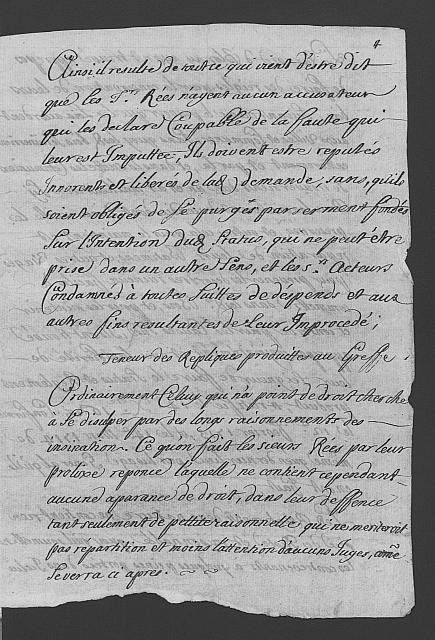 4
Ainsi il resulte de tout ce qui vient d'estre dit
que les Srs Rées n'ayent aucun accusateur
qui les declare Coupable de la faute qui
leur est Imputtée, Ils doivent estre reputés
Innocents et liberés de lad demande, sans, qu'ils
soient obligés de Se purger par serment fondés
Sur l'Intention dud Statut, qui ne peut être
prise dans un autre Sens, et les Srs Acteurs
Condamnés à toutes Suittes de déspends et aux
autres fins resultantes de Leur Improcedé;
Teneur des Repliques produittes au Greffe
Ordinairement Celuy qui n'a point de droit cherche
à Se disculper par des longs raisonnements des
insination. Ce qu'on fait les sieurs Rées par leur
prolixe reponce laquelle ne contient cependant
aucune aparance de droit, dans leur deffence
tant seulement de petitte raisonnelle qui ne meriteroit
pas répartition et moins l'attention d'aucuns Juges, come
Se verra ci apres.